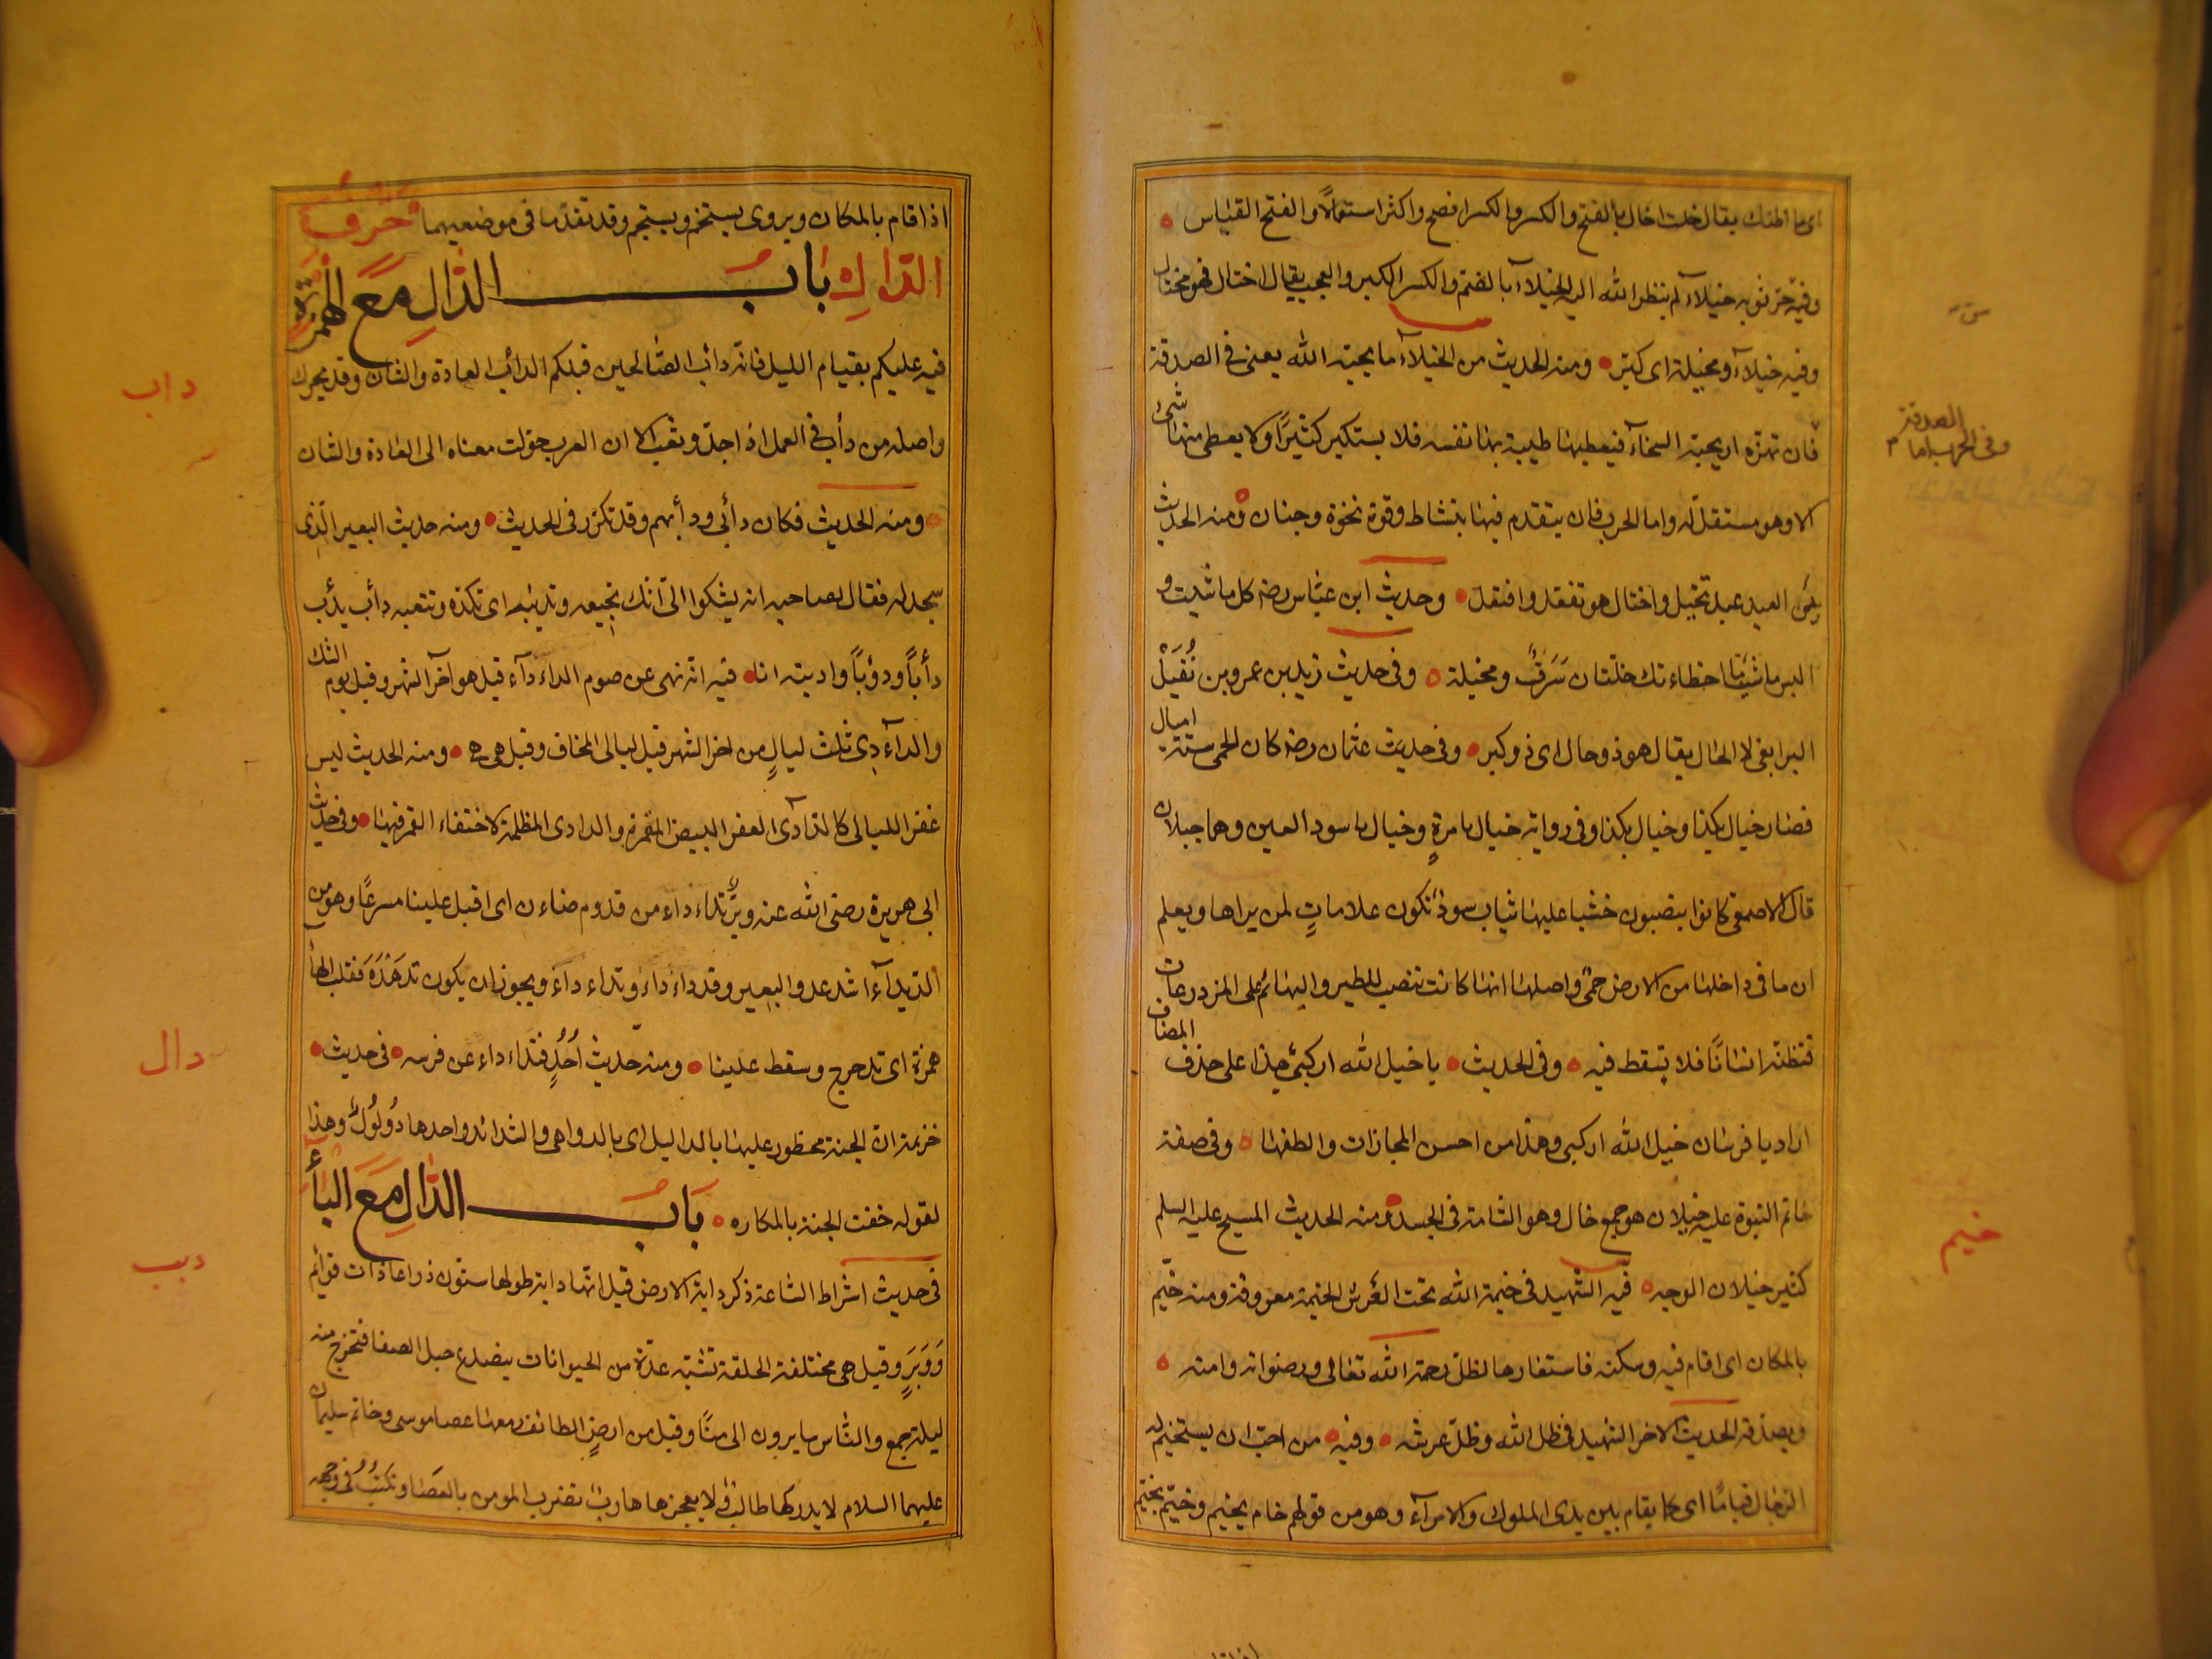 اى ما اظنك يقال خلت اخال بالفتح والكسر والكسر افصح واكثر استعمالاً والفتح القياس
وفيه من جر ثوبه خيلآء لم ينظر الله اليه الخيلآء بالضم والكسر الكبر والعجب يقال اختال فهو مختال
وفيه خيلآء ومخيلة اى كبر ومنه الحديث من الخيلآء ما يحبه الله يعنى فى الصدقة
الصدقة
وفى الحرب اما
فان تهزه اريحية السخآء فيعطيها طيبة بها نفسه فلا يستكثر كثيرًا ولا يعطى منها شئ
الا وهو مستقل له واما الحرب فان يتقدم فيها بنشاط وقوة نخوة وجنان ومنه الحديث
بئس العبد عبد تخيل واختال هو تفعل وافتعل وحديث ابن عباس رضه كل ما شئت و
البس ما شئت ما اخطاءتك خلتان سَرَفٌ ومخيلة وفى حديث زيد بن عمرو بن نُفَيْل
البر ابغى لا الخال يقال هو ذو خال اى ذو كبر وفى حديث عثمان رضه كان الحمى ستة اميال
فصار خيال بكذا وخيال بكذا وفى رواية خيال بامرةٍ وخيال باسود العين وهما جبلان
قال الاصمعى كانوا ينصبون خشبا عليها ثياب سود تكون علاماتٍ لمن يراها ويعلم
ان ما فى داخلها من الارض حمى واصلها انها كانت تنصب للطير والبهائم على المزدرعات
فتظنه انسانًا فلا تسقط فيه وفى الحديث يا خيل الله اركبى هذا على حذف المضاف
اراد يا فرسان خيل الله اركبى وهذا من احسن المجازات والطفها وفى صفة
خاتم النبوة عليه خيلان هو جمع خال وهو الشامة فى الجسد ومنه الحديث المسيح عليه السلم
خيم
كثير خيلان الوجه فيه الشهيد فى خيمة الله تحت العرش الخيمة معروفة ومنه خيّم
بالمكان اى اقام فيه وسكنه فاستعارها لظل رحمة الله تعالى ورضوانه وامنه
ويصدقه الحديث الاخر الشهيد فى ظل الله وظل عرشه وفيه من احب ان يستخيم له
الرجال قيامًا اى كما يقام بين يدى الملوك والامرآء وهو من قولهم خام يخيم وخيّم يخيّم
اذا اقام بالمكان ويروى يستخم ويستجم وقد تقدما فى موضعيهما حَرْف
الدال بَابُ الدَّالِ مَعَ الهَمْزَة
داب
فيه عليكم بقيام الليل فانه دأب الصالحين قبلكم الدأب العادة والشان وقد يحرك
واصله من دأب فى العمل اذا جد وتعب الا ان العرب حولت معناه الى العادة والشان
ومنه الحديث فكان دأبى ودأبهم وقد تكرر فى الحديث ومنه حديث البعير الذى
سجد له فقال لصاحبه انه يشكوا الىّ انك تجيعه وتدئبه اى تكده وتتعبه دأب يدأب
دأبًا ودؤبًا وادبته انا فيه انه نهى عن صوم الداء دآء قيل هو آخر الشهر وقيل يوم الشك
والدآء دى ثلث ليالٍ من اخر الشهر قبل ليالى المحاق وقيل هى هى ومنه الحديث ليس
عفر الليالى كالدآدى العفر البيض المقمرة والدادى المظلمة لاختفاء القمر فيها وفى حديث
ابى هريرة رضى الله عنه وبرٌ تداء داء من قدوم ضاءن اى اقبل علينا مسرعًا وهو من
الديدآء اشد عدو البعير وقد داء داء وتداء داء ويجوز ان يكون تدهده فقلب الهآء
دال
همزة اى تدحرج وسقط علينا ومنه حديث اُحُدٍ فتداء داء عن فرسه فى حديث
خزيمة ان الجنة محظور عليها بالداليل اى بالدواهى والشدائد واحدها دُولُولٌ وهذا
لقوله حفت الجنة بالمكاره بَابُ الدَّالِ مَعَ البَاءِ
دبب
فى حديث اشراط الساعة ذكر دابة الارض قيل انها دابة طولها ستون ذراعا ذات قوائم
وَوَبَرٍ وقيل هى مختلفة الخلقة تشبه عدة من الحيوانات ينصدع جبل الصفا فتخرج منه
ليلة جمع والناس سايرون الى منًا وقيل من ارض الطائف ومعها عصا موسى وخاتم سليمان
عليهما السلام لا يدركها طالب ولا يعجزها هارب تضرب المومن بالعصا وتكتب فى وجهه